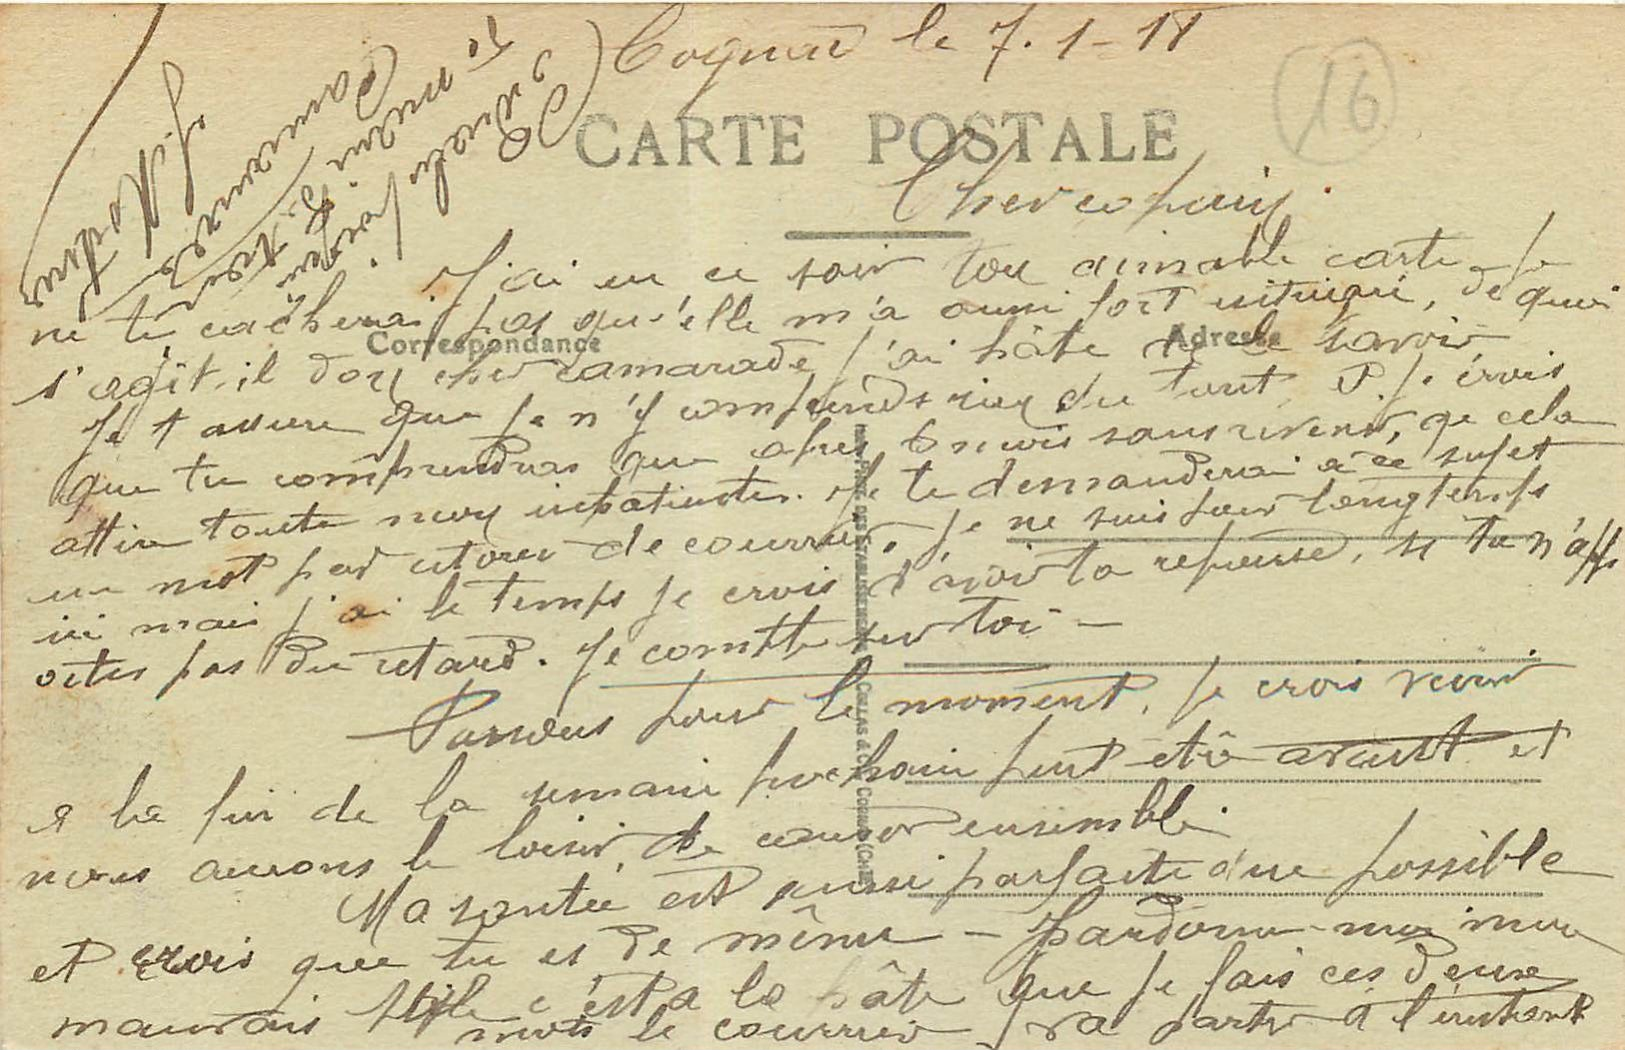 Cognac le 7.1-18
16
CARTE POSTALE
Cher copain
J'ai eu ce soir ton aimable carte. Je
ne te cacherai pas qu'elle m'a aussi fort intrigué, de quoi
Correspondance
Adresse
s'agit-il don cher camarade, j'ai hâte de le savoir
Je t'assure que je n'y comprends rien du tout. Je crois
que tu comprendras que après 6 mois sans revenir, que cela
attire toute mon impatiente. Je te demanderai à ce sujet
un mot par retour de courrier. Je ne suis pour longtemps
ici mais j'ai le temps je crois d'avoir ta réponse, si tu n'app
ortes pas du retard. Je compte sur toi -
Passons pour le moment, je crois venir
à la fin de la semaine prochain peut-être avant et
nous aurons le loisir de causer ensemble.
Ma santée est aussi parfaite que possible
et crois que tu es de même - Pardonne-moi mon
mauvais style c'est à la hâte que je fais ces deux
mots le courrier va partir à l'instant
camarade